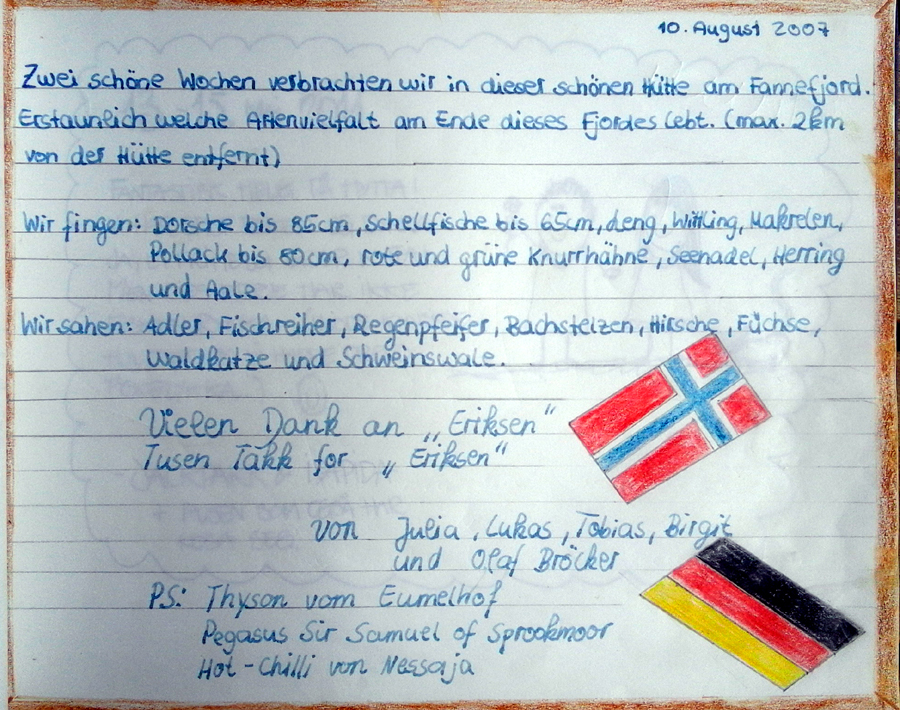 10. August 2007
Zwei schöne Wochen verbrachten wir in dieser schönen Hütte am Fannefjord.
Erstaunlich welche Artenvielfalt am Ende dieses Fjordes lebt. (max. 2km
von der Hütte entfernt)
Wir fingen: Dorsche bis 85cm, Schellfische bis 65cm, Leng, Wittling, Makrelen,
Pollack bis 80cm, rote und grüne Knurrhähne, Seenadel, Herring
und Aale.
Wir sahen: Adler, Fischreiher, Regenpfeifer, Bachstelzen, Hirsche, Füchse,
Waldkatze und Schweinswale.
Vielen Dank an „Eriksen“
Tusen Takk for „Eriksen“
von Julia, Lukas, Tobias, Birgit
und Olaf Bröcker
PS: Thyson vom Eumelhof
Pegasus Sir Samuel of Sprookmoor
Hot-Chilli von Nessaja